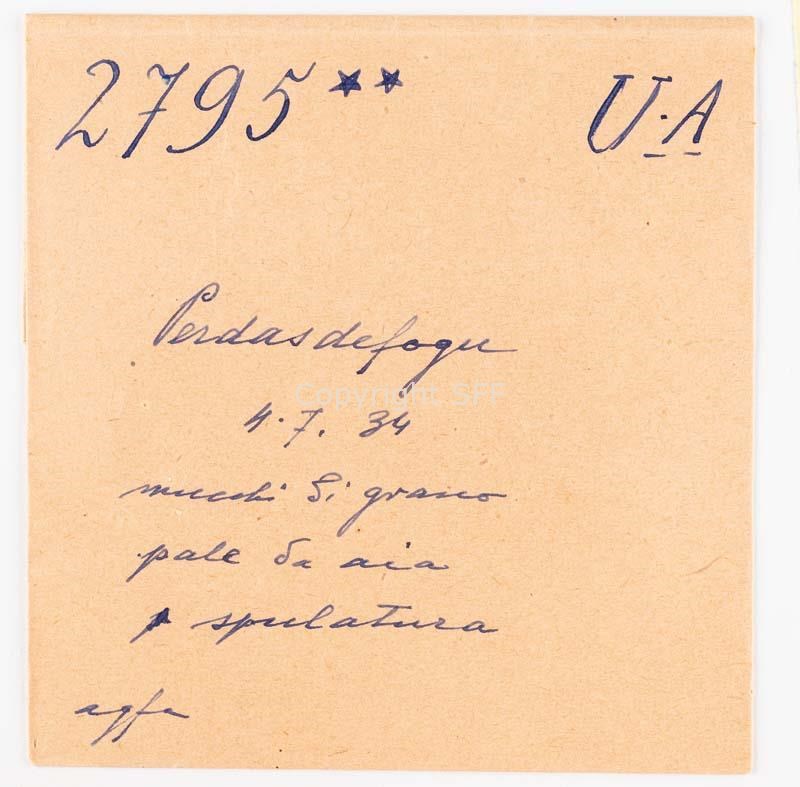 2795** U.A
Perdasdefogu
Copyright SFF
4.7.34
mucchi di grano
pale da aia
spulatura
agfa